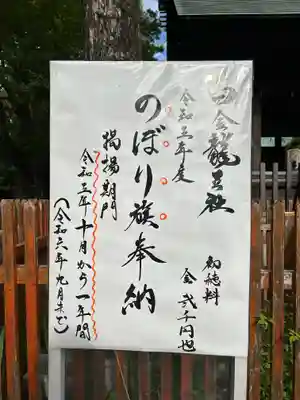 金龍王社
令和五年度
初穂料
金 弐千円也
のぼり旗奉納
掲揚期間
令和五年十月から一年間
(令和六年九月末まで)